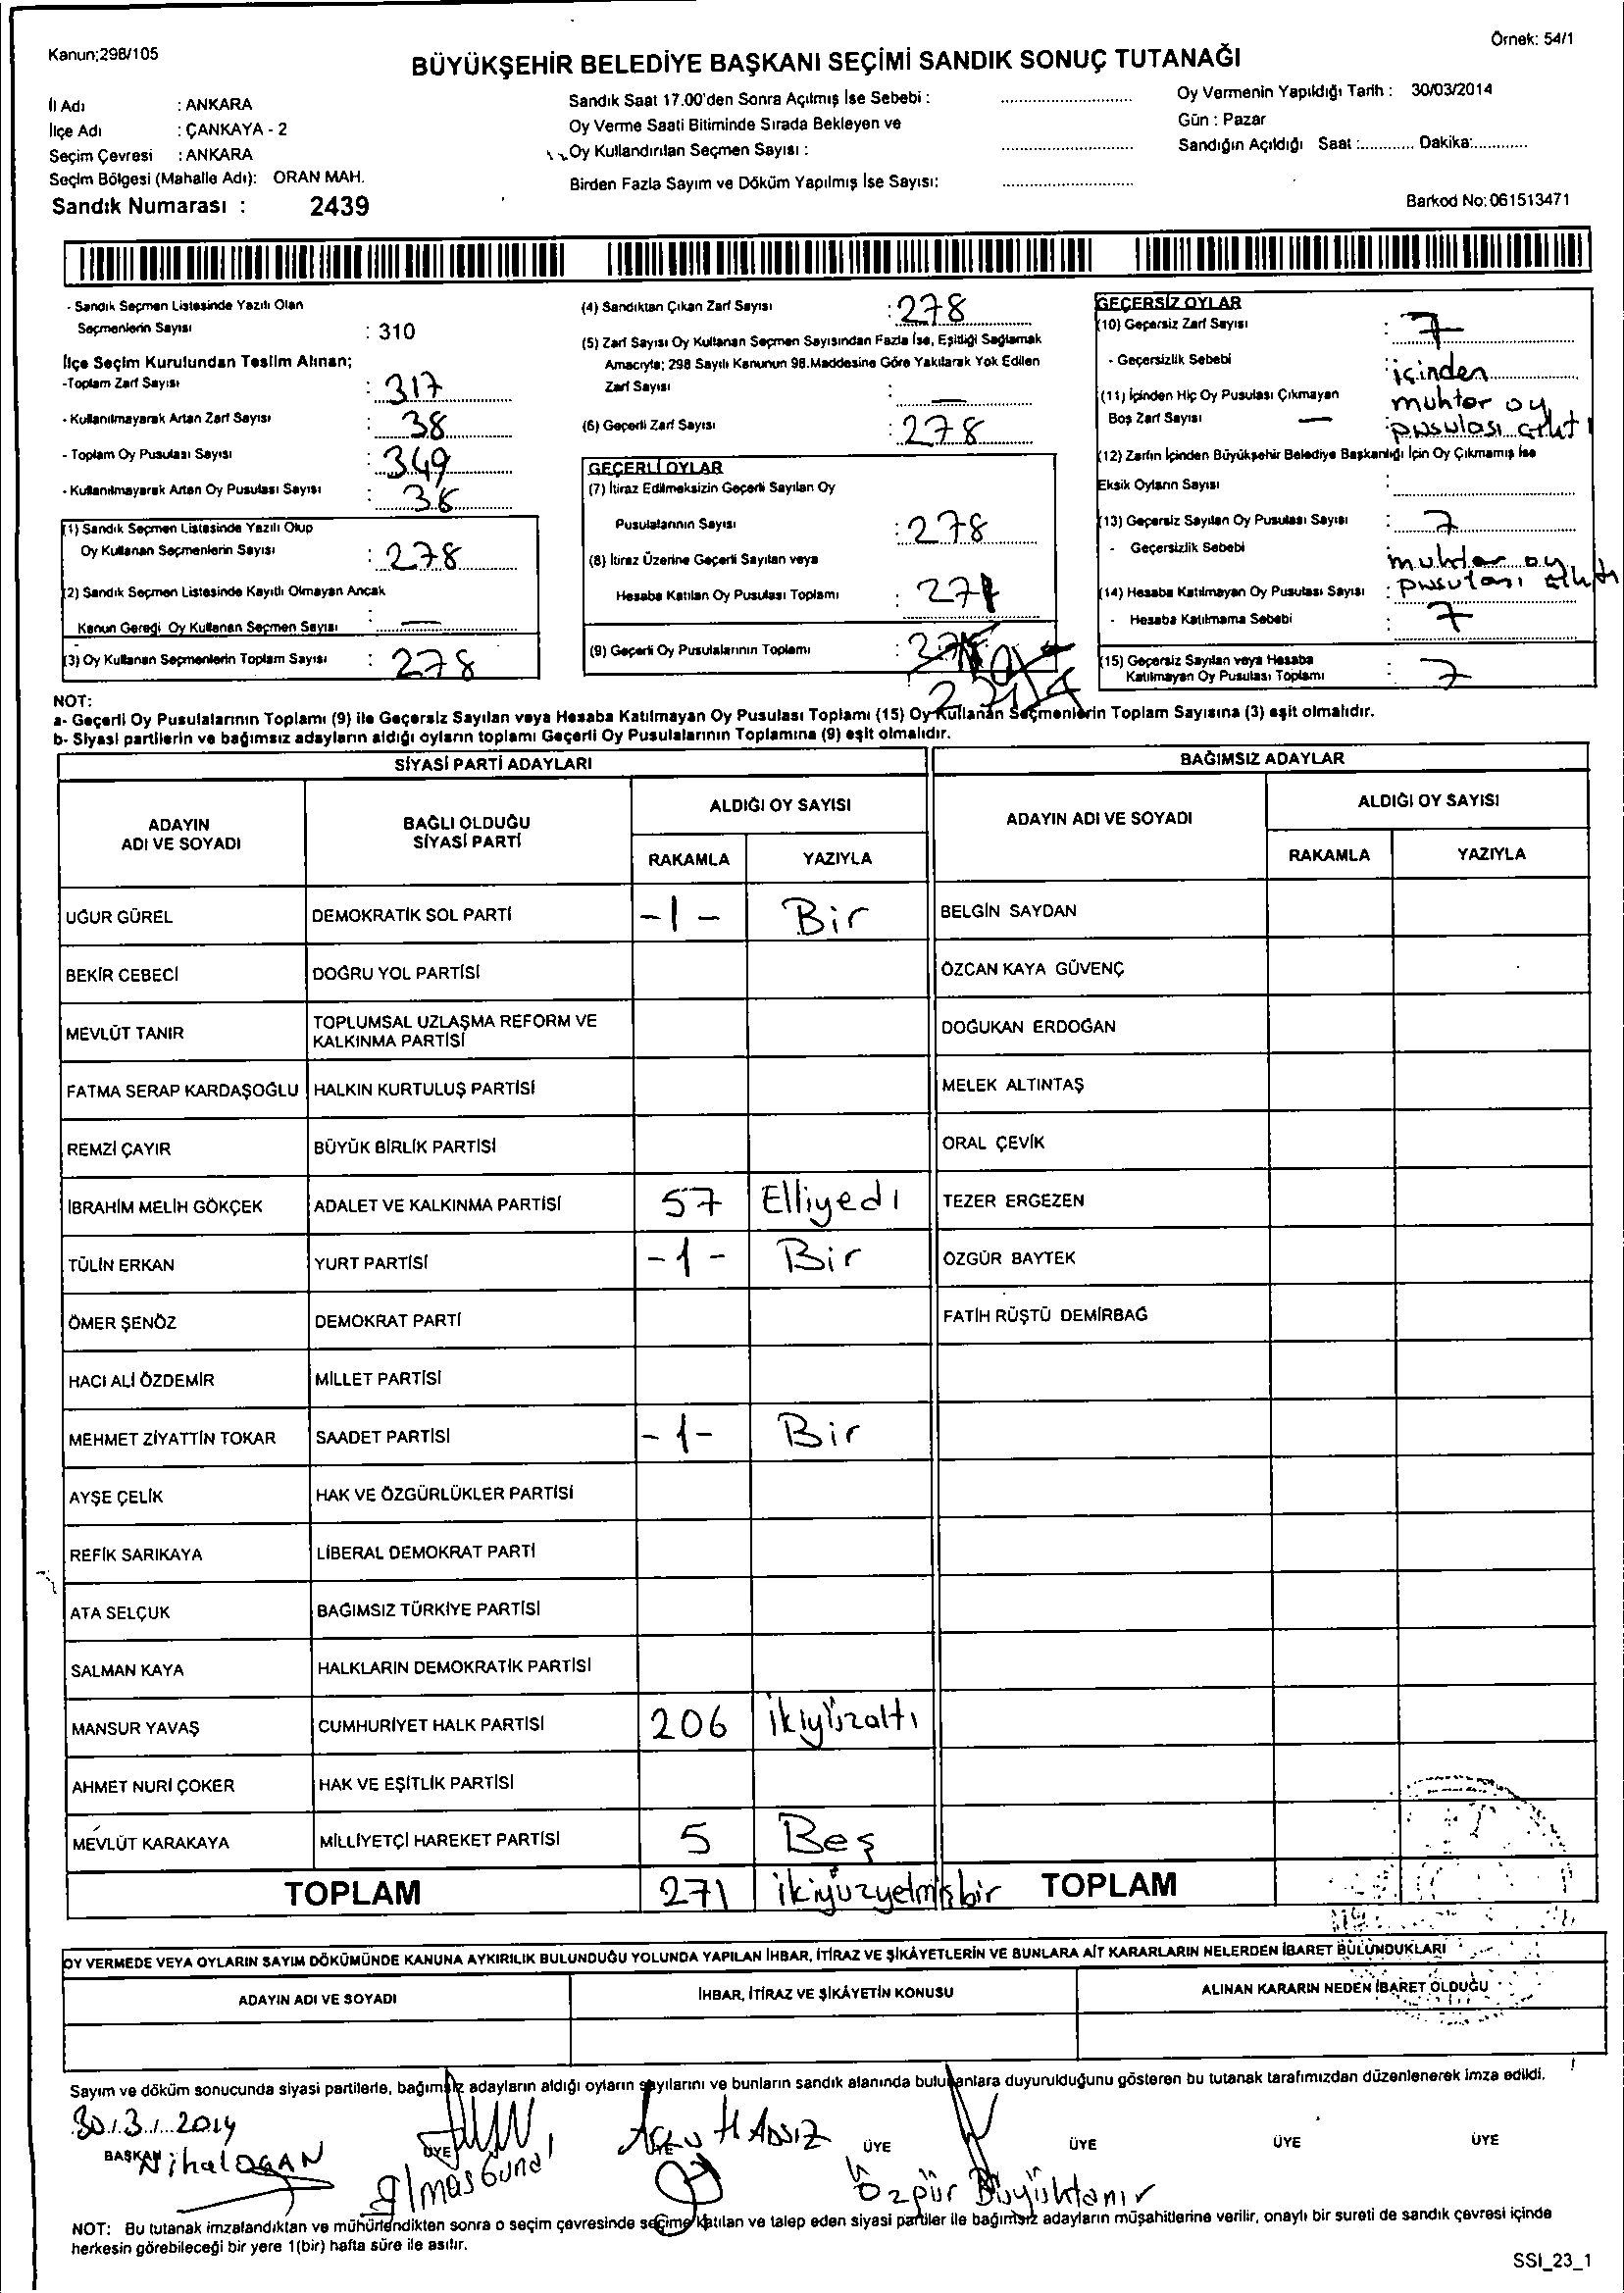 Kanun;298/105
Örnek: 54/1
BÜYÜKŞEHİR BELEDİYE BAŞKANI SEÇİMİ SANDIK SONUÇ TUTANAĞI
İl Adı : ANKARA
İlçe Adı : ÇANKAYA - 2
Seçim Çevresi : ANKARA
Seçim Bölgesi (Mahalle Adı): ORAN MAH.
Sandık Numarası : 2439
Sandık Saat 17.00'den Sonra Açılmış İse Sebebi :
Oy Verme Saati Bitiminde Sırada Bekleyen ve
Oy Kullandırılan Seçmen Sayısı :
Birden Fazla Sayım ve Döküm Yapılmış İse Sayısı:
Oy Vermenin Yapıldığı Tarih : 30/03/2014
Gün : Pazar
Sandığın Açıldığı Saat :............ Dakika:............
Barkod No: 061513471
- Sandık Seçmen Listesinde Yazılı Olan
Seçmenlerin Sayısı : 310
İlçe Seçim Kurulundan Teslim Alınan;
-Toplam Zarf Sayısı : 317
- Kullanılmayarak Artan Zarf Sayısı : 38
- Toplam Oy Pusulası Sayısı : 349
- Kullanılmayarak Artan Oy Pusulası Sayısı :
(1) Sandık Seçmen Listesinde Yazılı Olup
Oy Kullanan Seçmenlerin Sayısı : 278
(2) Sandık Seçmen Listesinde Kayıtlı Olmayan Ancak
Kanun Gereği Oy Kullanan Seçmen Sayısı : —
(3) Oy Kullanan Seçmenlerin Toplam Sayısı : 278
(4) Sandıktan Çıkan Zarf Sayısı : 278
(5) Zarf Sayısı Oy Kullanan Seçmen Sayısından Fazla İse, Eşitliği Sağlamak
Amacıyla; 298 Sayılı Kanunun 98.Maddesine Göre Yakılarak Yok Edilen
Zarf Sayısı : —
(6) Geçerli Zarf Sayısı : 278
GEÇERLİ OYLAR
(7) İtiraz Edilmeksizin Geçerli Sayılan Oy
Pusulalarının Sayısı : 278
(8) İtiraz Üzerine Geçerli Sayılan veya
Hesaba Katılan Oy Pusulası Toplamı : 271
(9) Geçerli Oy Pusulalarının Toplamı :
GEÇERSİZ OYLAR
(10) Geçersiz Zarf Sayısı : 7
- Geçersizlik Sebebi : içinden
muhtar oy
pusulası çıktı
(11) İçinden Hiç Oy Pusulası Çıkmayan
Boş Zarf Sayısı —
(12) Zarfın İçinden Büyükşehir Belediye Başkanlığı İçin Oy Çıkmamış İse
Eksik Oyların Sayısı :
(13) Geçersiz Sayılan Oy Pusulası Sayısı : 7
- Geçersizlik Sebebi muhtar oy
pusulası çıktı
(14) Hesaba Katılmayan Oy Pusulası Sayısı : 7
- Hesaba Katılmama Sebebi :
(15) Geçersiz Sayılan veya Hesaba
Katılmayan Oy Pusulası Toplamı : 7
NOT:
a- Geçerli Oy Pusulalarının Toplamı (9) ile Geçersiz Sayılan veya Hesaba Katılmayan Oy Pusulası Toplamı (15) Oy Kullanan Seçmenlerin Toplam Sayısına (3) eşit olmalıdır.
b- Siyasi partilerin ve bağımsız adayların aldığı oyların toplamı Geçerli Oy Pusulalarının Toplamına (9) eşit olmalıdır.
SİYASİ PARTİ ADAYLARI
BAĞIMSIZ ADAYLAR
ADAYIN ADI VE SOYADI
BAĞLI OLDUĞU SİYASİ PARTİ
ALDIĞI OY SAYISI
RAKAMLA YAZIYLA
ADAYIN ADI VE SOYADI
ALDIĞI OY SAYISI
RAKAMLA YAZIYLA
UĞUR GÜREL DEMOKRATİK SOL PARTİ -1- Bir BELGİN SAYDAN
BEKİR CEBECİ DOĞRU YOL PARTİSİ ÖZCAN KAYA GÜVENÇ
MEVLÜT TANIR TOPLUMSAL UZLAŞMA REFORM VE KALKINMA PARTİSİ DOĞUKAN ERDOĞAN
FATMA SERAP KARDAŞOĞLU HALKIN KURTULUŞ PARTİSİ MELEK ALTINTAŞ
REMZİ ÇAYIR BÜYÜK BİRLİK PARTİSİ ORAL ÇEVİK
İBRAHİM MELİH GÖKÇEK ADALET VE KALKINMA PARTİSİ 57 Elliyedi TEZER ERGEZEN
TÜLİN ERKAN YURT PARTİSİ -1- Bir ÖZGÜR BAYTEK
ÖMER ŞENÖZ DEMOKRAT PARTİ FATİH RÜŞTÜ DEMİRBAĞ
HACI ALİ ÖZDEMİR MİLLET PARTİSİ
MEHMET ZİYATTİN TOKAR SAADET PARTİSİ -1- Bir
AYŞE ÇELİK HAK VE ÖZGÜRLÜKLER PARTİSİ
REFİK SARIKAYA LİBERAL DEMOKRAT PARTİ
ATA SELÇUK BAĞIMSIZ TÜRKİYE PARTİSİ
SALMAN KAYA HALKLARIN DEMOKRATİK PARTİSİ
MANSUR YAVAŞ CUMHURİYET HALK PARTİSİ 206 ikiyüzaltı
AHMET NURİ ÇOKER HAK VE EŞİTLİK PARTİSİ
MEVLÜT KARAKAYA MİLLİYETÇİ HAREKET PARTİSİ 5 Beş
TOPLAM 271 ikiyüzyetmişbir TOPLAM
OY VERMEDE VEYA OYLARIN SAYIM DÖKÜMÜNDE KANUNA AYKIRILIK BULUNDUĞU YOLUNDA YAPILAN İHBAR, İTİRAZ VE ŞİKÂYETLERİN VE BUNLARA AİT KARARLARIN NELERDEN İBARET BULUNDUKLARI
ADAYIN ADI VE SOYADI İHBAR, İTİRAZ VE ŞİKÂYETİN KONUSU ALINAN KARARIN NEDEN İBARET OLDUĞU
Sayım ve döküm sonucunda siyasi partilerle, bağımsız adayların aldığı oyların sayılarını ve bunların sandık alanında bulunanlara duyurulduğunu gösteren bu tutanak tarafımızdan düzenlenerek imza edildi.
30.13.1...2014
BAŞKAN ÜYE ÜYE ÜYE ÜYE ÜYE
Nihal DOĞAN Elmas Günal Özgür Büyüktanır
NOT: Bu tutanak imzalandıktan ve mühürlendikten sonra o seçim çevresinde seçime katılan ve talep eden siyasi partiler ile bağımsız adayların müşahitlerine verilir, onaylı bir sureti de sandık çevresi içinde
herkesin görebileceği bir yere 1(bir) hafta süre ile asılır.
SSI_23_1